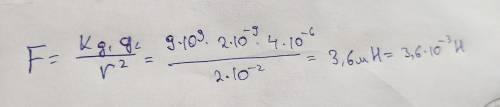 F = \frac{k q_1 q_2}{r^2} = \frac{9 \cdot 10^9 \cdot 2 \cdot 10^{-9} \cdot 4 \cdot 10^{-6}}{2 \cdot 10^{-2}} = 3,6мН = 3,6 \cdot 10^{-3} Н